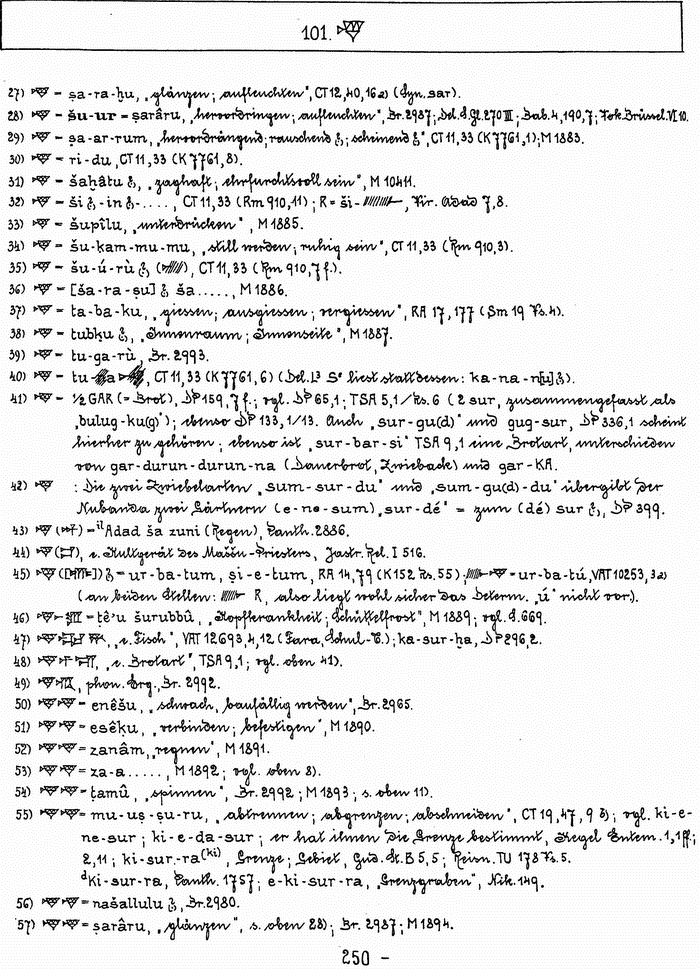 101. 𒋩
27) 𒋩 = ṣa-ra-ḫu, „glänzen; aufleuchten", CT 12,40,16a) (Syn. sar).
28) 𒋩 = šu-ur = ṣarâru, „hervordringen; aufleuchten", Br. 2987; Del. S. Gl. 270 III; Bab. 4,190,7; Vok. Brüssel VI 10.
29) 𒋩 = ṣa-ar-rum, „hervordrängend; rauschend; scheinend", CT 11,33 (K 7761,1); M 1883.
30) 𒋩 = ri-du, CT 11,33 (K 7761,8).
31) 𒋩 = šaḫâtu, „zaghaft; ehrfurchtsvoll sein", M 10411.
32) 𒋩 = ši -in - ...., CT 11,33 (Rm 910,11); R = ši- , Vir. Adad 7,8.
33) 𒋩 = šupîlu, „unterdrücken", M 1885.
34) 𒋩 = šu-ḳam-mu-mu, „still werden; ruhig sein", CT 11,33 (Rm 910,3).
35) 𒋩 = šu-ú-rù , CT 11,33 (Rm 910,7 f.).
36) 𒋩 = [ša-ra-ṣu] ša ....., M 1886.
37) 𒋩 = ta-ba-ku, „giessen; ausgiessen; vergiessen", RA 17,177 (Sm 19 Vs. 4).
38) 𒋩 = tubḳu, „Innenraum; Innenseite", M 1887.
39) 𒋩 = tu-ga-rù, Br. 2993.
40) 𒋩 = tu- a , CT 11,33 (K 7761,6) (Del. L³ Sᵉ liest statt dessen: ka-na-n[u]).
41) 𒋩 = ½ GAR (= Brot), DP 159,7 f.; vgl. DP 65,1; TSA 5,1/Rs. 6 (2 sur, zusammengefasst als
„bulug-ku(g)"); ebenso DP 133,1/13. Auch „sur-gu(d)" und gug-sur, DP 336,1 scheint
hierher zu gehören; ebenso ist „sur-bar-si" TSA 9,1 eine Brotart, unterschieden
von gar-durun-durun-na (Dauerbrot, Zwieback) und gar-KA.
42) 𒋩 : Die zwei Zwiebelarten „sum-sur-du" und „sum-gu(d)-du" übergibt der
Nubanda zwei Gärtnern (e-ne-sum) „sur-dé" = zum (dé) sur, DP 399.
43) 𒋩 = ⁱˡAdad ša zuni (Regen), Panth. 2886.
44) 𒋩, e. Kultgerät des Maššu-Priesters, Jastr. Rel. I 516.
45) 𒋩 = ur-ba-tum, ṣi-e-tum, RA 14,79 (K 152 Rs. 55); 𒋩 = ur-ba-tú, VAT 10253,3a)
(an beiden Stellen: R, also liegt wohl sicher das Determ. „ú" nicht vor).
46) 𒋩 = ṭê'u šurubbû, „Kopfkrankheit; Schüttelfrost", M 1889; vgl. S. 669.
47) 𒋩 , „e. Fisch", VAT 12693,4,12 (Fara, Schul-T.); ka-sur-ḫa, DP 296,2.
48) 𒋩 , „e. Brotart", TSA 9,1; vgl. oben 41).
49) 𒋩 , phon. Erg., Br. 2992.
50) 𒋩𒋩 = enêšu, „schwach, baufällig werden", Br. 2965.
51) 𒋩𒋩 = esêḳu, „verbinden; befestigen", M 1890.
52) 𒋩𒋩 = zanâm, „regnen", M 1891.
53) 𒋩𒋩 = za-a ....., M 1892; vgl. oben 8).
54) 𒋩𒋩 = ṭamû, „spinnen", Br. 2992; M 1893; s. oben 11).
55) 𒋩𒋩 = mu-uṣ-ṣu-ru, „abtrennen; abgrenzen; abschneiden", CT 19,47,9 b); vgl. ki-e-
ne-sur; ki-e-da-sur; er hat ihnen die Grenze bestimmt, Kegel Entem. 1,1 ff.;
2,11; ki-sur-ra⁽ᵏⁱ⁾, Grenze; Gebiet, Gud. St. B 5,5; Reisn. TU 178 Vs. 5.
ᵈKi-sur-ra, Panth. 1757; e-ki-sur-ra, „Grenzgraben", Nik. 149.
56) 𒋩𒋩 = našallulu, Br. 2980.
57) 𒋩𒋩 = ṣarâru, „glänzen", s. oben 28); Br. 2987; M 1894.
250 -